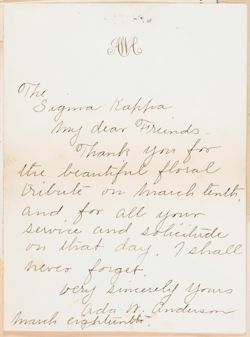 AWA
The
Sigma Kappa
My dear Freinds -
Thank you for
the beautiful floral
tribute on March tenth.
and for all your
service and solicitude
on that day. I shall
never forget.
Very sincerely yours
Ada W. Anderson
March eighteenth.